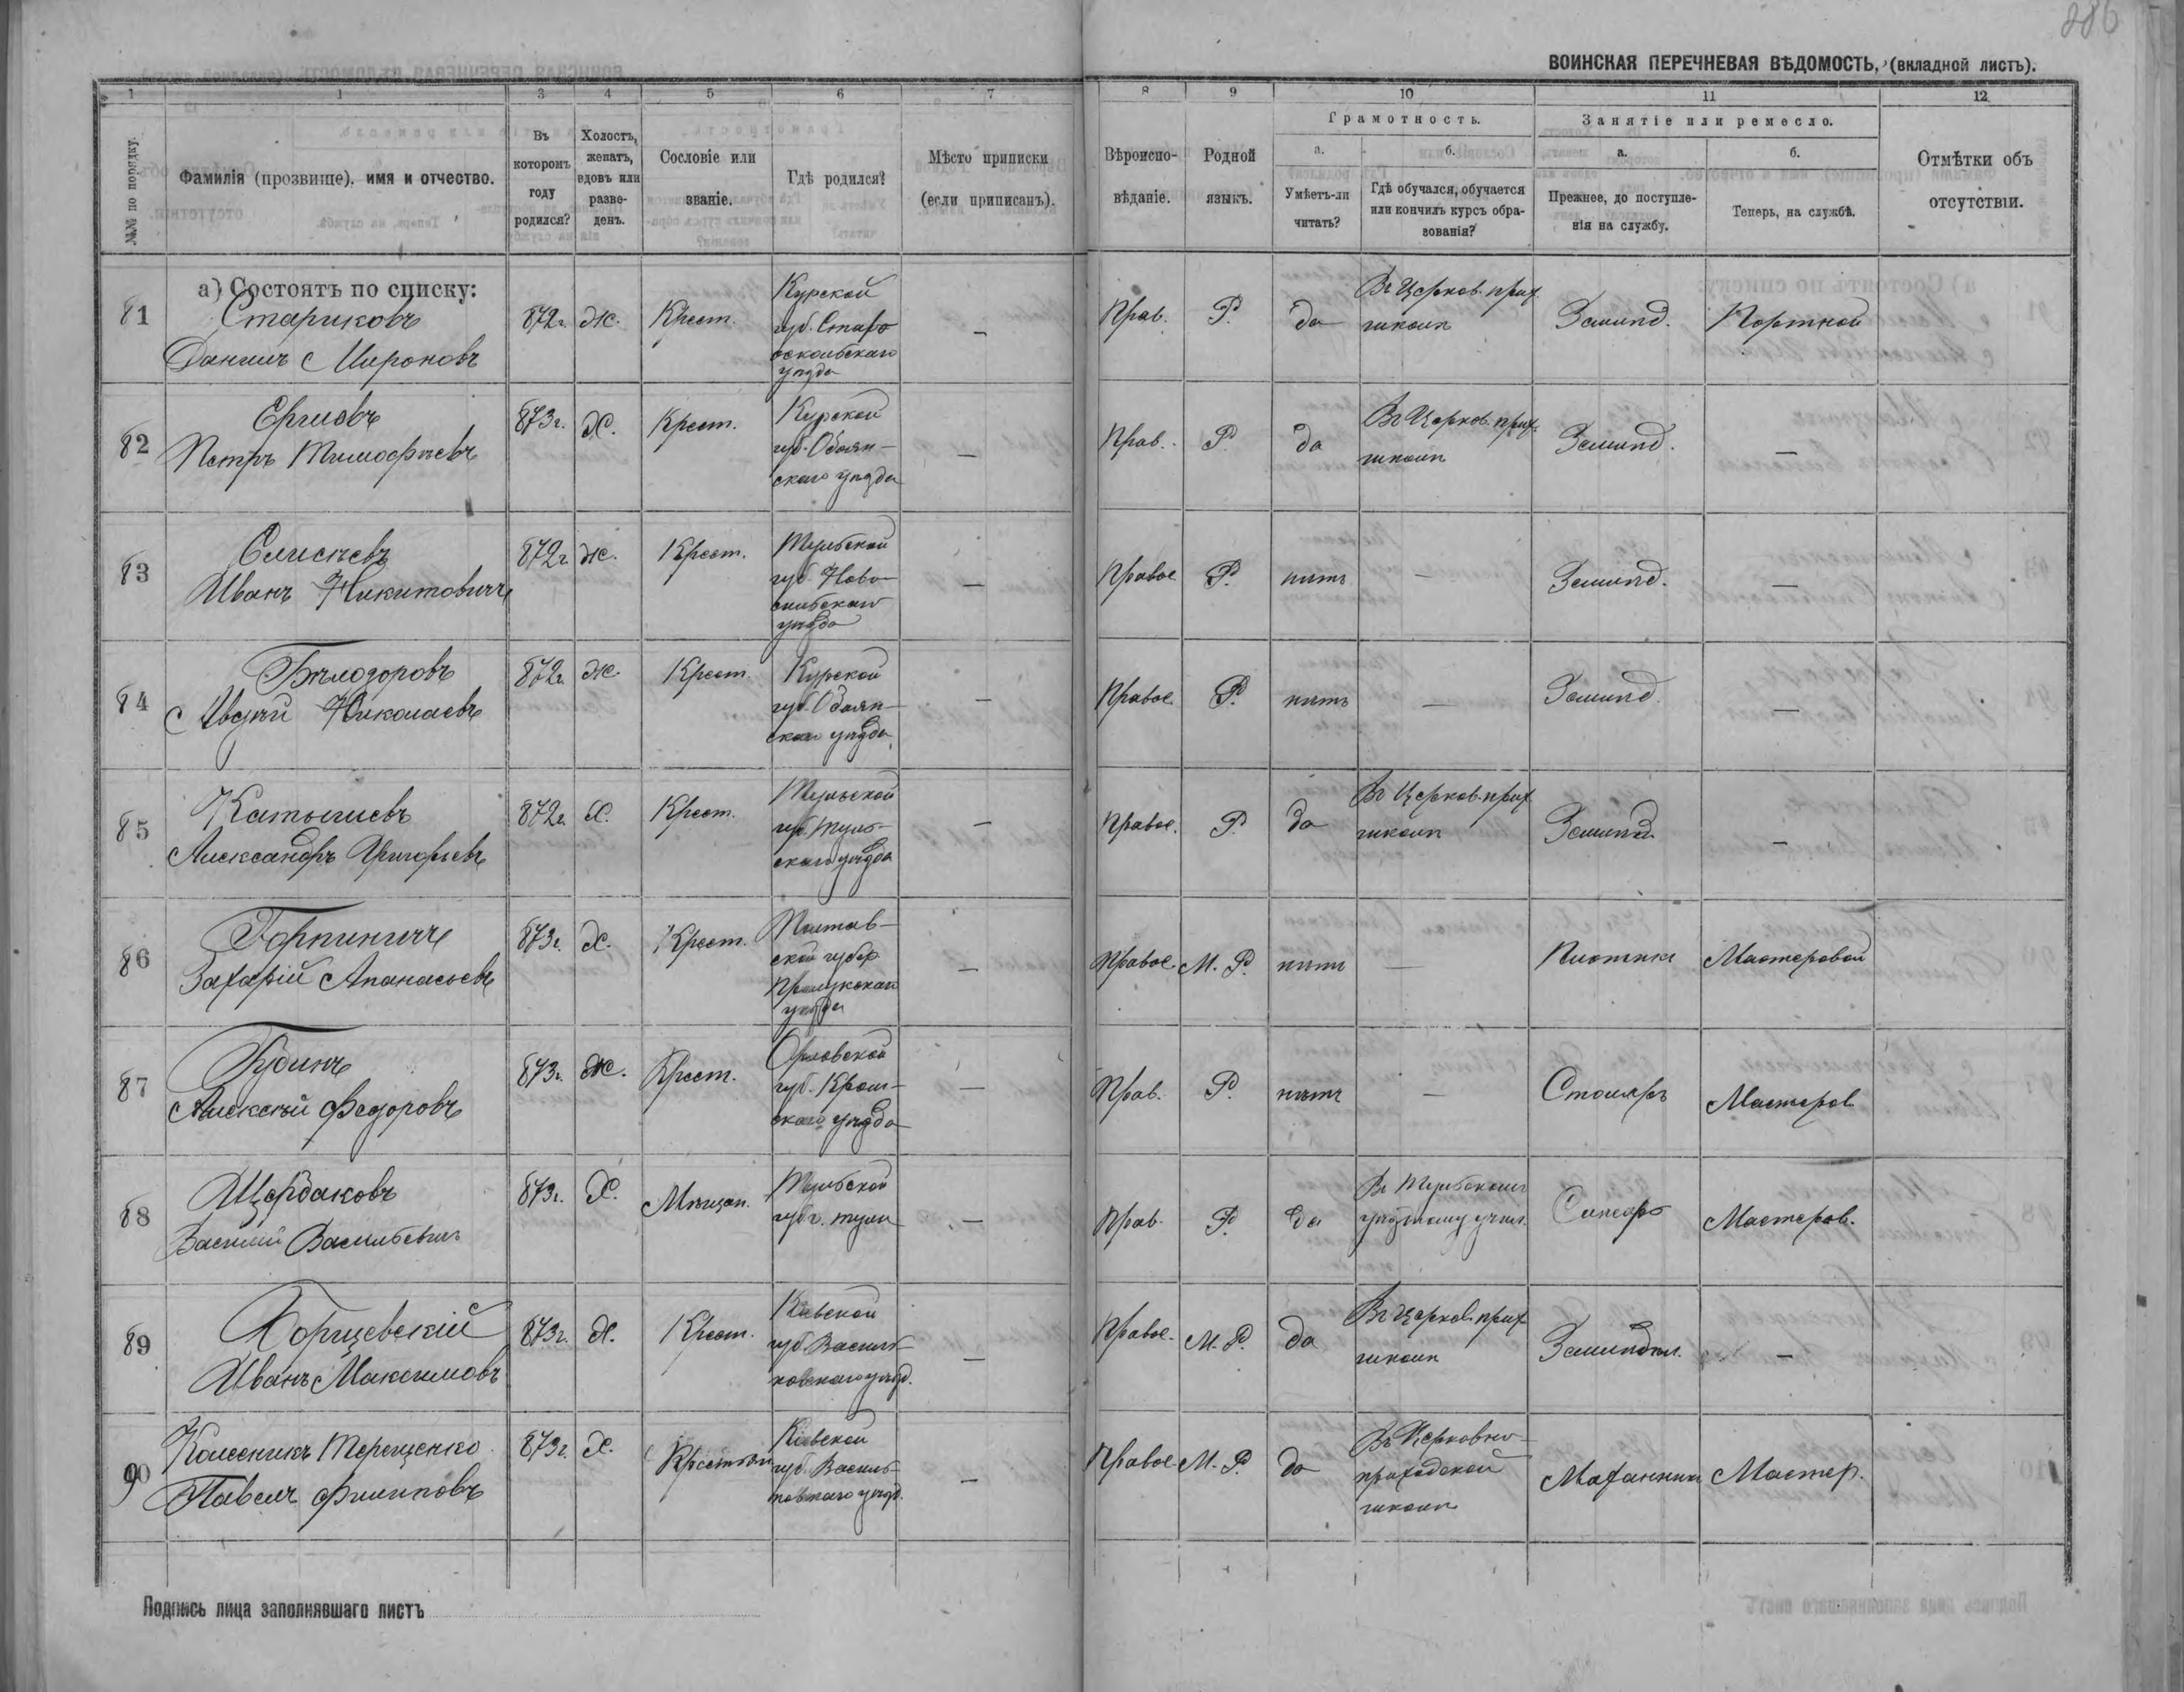 286
ВОИНСКАЯ ПЕРЕЧНЕВАЯ ВѢДОМОСТЬ, (вкладной листъ).
1 1 3 4 5 6 7 8 9 10 11 12
№№ по порядку.
Фамилія (прозвище), имя и отчество.
Въ которомъ году родился?
Холостъ, женатъ, вдовъ или разведенъ.
Сословіе или званіе.
Гдѣ родился?
Мѣсто приписки (если приписанъ).
Вѣроисповѣданіе.
Родной языкъ.
Грамотность.
а. Умѣетъ-ли читать?
б. Гдѣ обучался, обучается или кончилъ курсъ образованія?
Занятіе или ремесло.
а. Прежнее, до поступленія на службу.
б. Теперь, на службѣ.
Отмѣтки объ отсутствіи.
а) Состоятъ по списку:
81 Стариковъ Данилъ Мироновъ 872г. Ж. Крест. Курской губ. Старооскольскаго уѣзда — Прав. Р. да Въ Церков. прих. школѣ Землед. Портной
82 Петръ Тимофѣевъ 873г. Х. Крест. Курской губ. Обоянскаго уѣзда — Прав. Р. да Въ Церков. прих. школѣ Землед. —
83 Елисѣевъ Иванъ Никитовичъ 872г. Ж. Крест. Тульской губ. Новосильскаго уѣзда — Правос. Р. нѣтъ — Землед. —
84 Бѣлозоровъ Авдѣй Николаевъ 872г. Ж. Крест. Курской губ. Обоянскаго уѣзда — Правос. Р. нѣтъ — Землед. —
85 Александръ Григорьевъ 872г. Х. Крест. Тульской губ. Тульскаго уѣзда — Правос. Р. да Въ Церков. прих. школѣ Землед. —
86 Захарій Апанасьевъ 873г. Х. Крест. Полтавской губер. Прилукскаго уѣзда — Правос. М. Р. нѣтъ — Плотникъ Мастеровой
87 Гудинъ Алексѣй Федоровъ 873г. Ж. Крест. Орловской губ. Кромскаго уѣзда — Прав. Р. нѣтъ — Столяръ Мастеров.
88 Щербаковъ Василий Васильевичъ 873г. Х. Мѣщан. Тульской губ. г. Тулы — Прав. Р. да Въ Тульскомъ уѣздному учил. Слесарь Мастеров.
89 Борщевскій Иванъ Максимовъ 873г. Х. Крест. Кіевской губ. Васильковскаго уѣзд. — Правос. М. Р. да Въ церков. прих. школѣ Земледѣл. —
90 Колесникъ Терещенко Павелъ Филиповъ 873г. Х. Крестьян Кіевской губ. Васильковскаго уѣзд. — Правос. М. Р. да Въ Церковно-приходской школѣ Механикъ Мастер.
Подпись лица заполнявшаго листъ